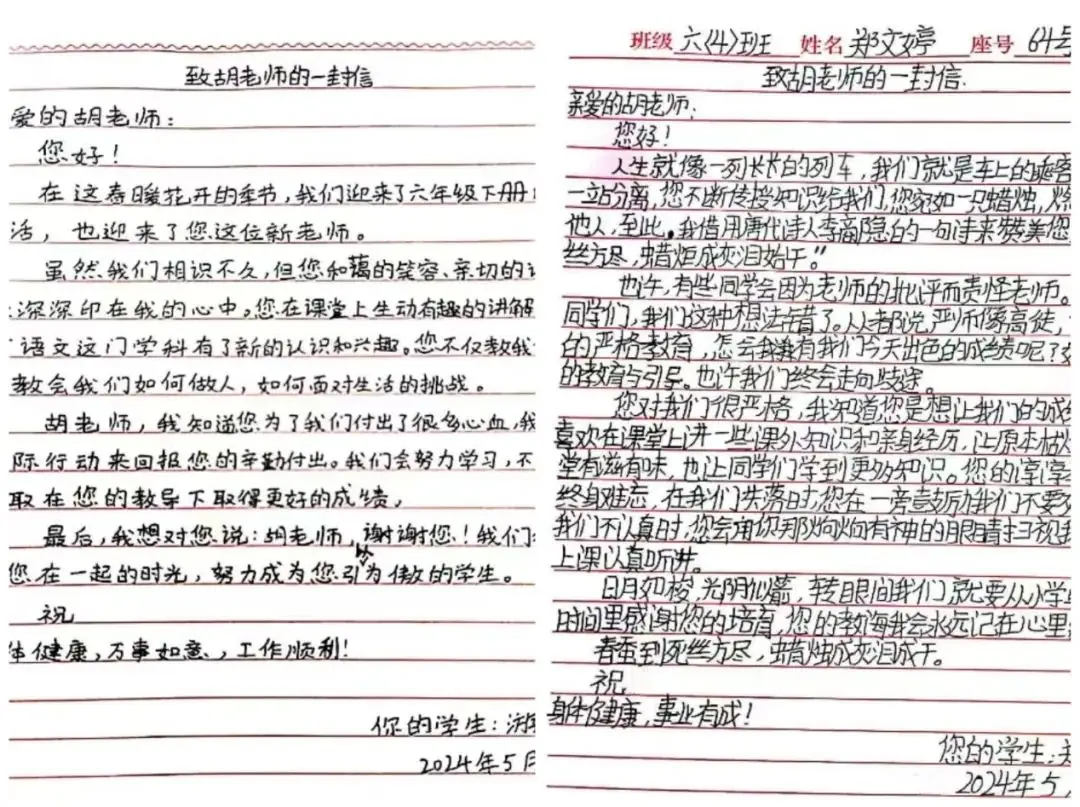 致胡老师的一封信
爱的胡老师：
您好！
在这春暖花开的季节，我们迎来了六年级下册
活，也迎来了您这位新老师。
虽然我们相识不久，但您和蔼的笑容、亲切的
深深印在我的心中。您在课堂上生动有趣的讲解
语文这门学科有了新的认识和兴趣。您不仅教我
教会我们如何做人，如何面对生活的挑战。
胡老师，我知道您为了我们付出了很多心血，我
际行动来回报您的辛勤付出。我们会努力学习，不
取在您的教导下取得更好的成绩，
最后，我想对您说：胡老师，谢谢您！我们
您在一起的时光，努力成为您引以为傲的学生。
祝
体健康，万事如意，工作顺利！
你的学生：游
2024年5月
班级 六(4)班 姓名 郑文婷 座号 64号
致胡老师的一封信.
亲爱的胡老师：
您好！
人生就像一列长长的列车，我们就是车上的乘客
一站分离，您不断传授知识给我们，您宛如一只蜡烛，燃
他人，到此。我借用唐代诗人李商隐的一句诗来赞美您
丝方尽，蜡炬成灰泪始干。”
也许，有些同学会因为老师的批评而责怪老师。
同学们，我们这种想法错了。人人都说，严师傅高徒，
的严格教育，怎会有我们今天出色的成绩呢？
的教育与引导。也许我们终会走向歧途。
您对我们很严格，我知道您是想让我们的成
喜欢在课堂上讲一些课外知识和亲身经历，让原本枯
堂有滋有味，也让同学们学到更多知识。您的谆谆
终身难忘，在我们失落时，您在一旁鼓励我们不要
我们不认真时，您会用您那炯炯有神的眼睛扫视
上课认真听讲。
日月如梭，光阴似箭，转眼间我们就要从小学
时间里感谢您的培育，您的教诲我会永远记在心里
春蚕到死丝方尽，蜡烛成灰泪成干。
祝
身体健康，事业有成！
您的学生：郑
2024年5